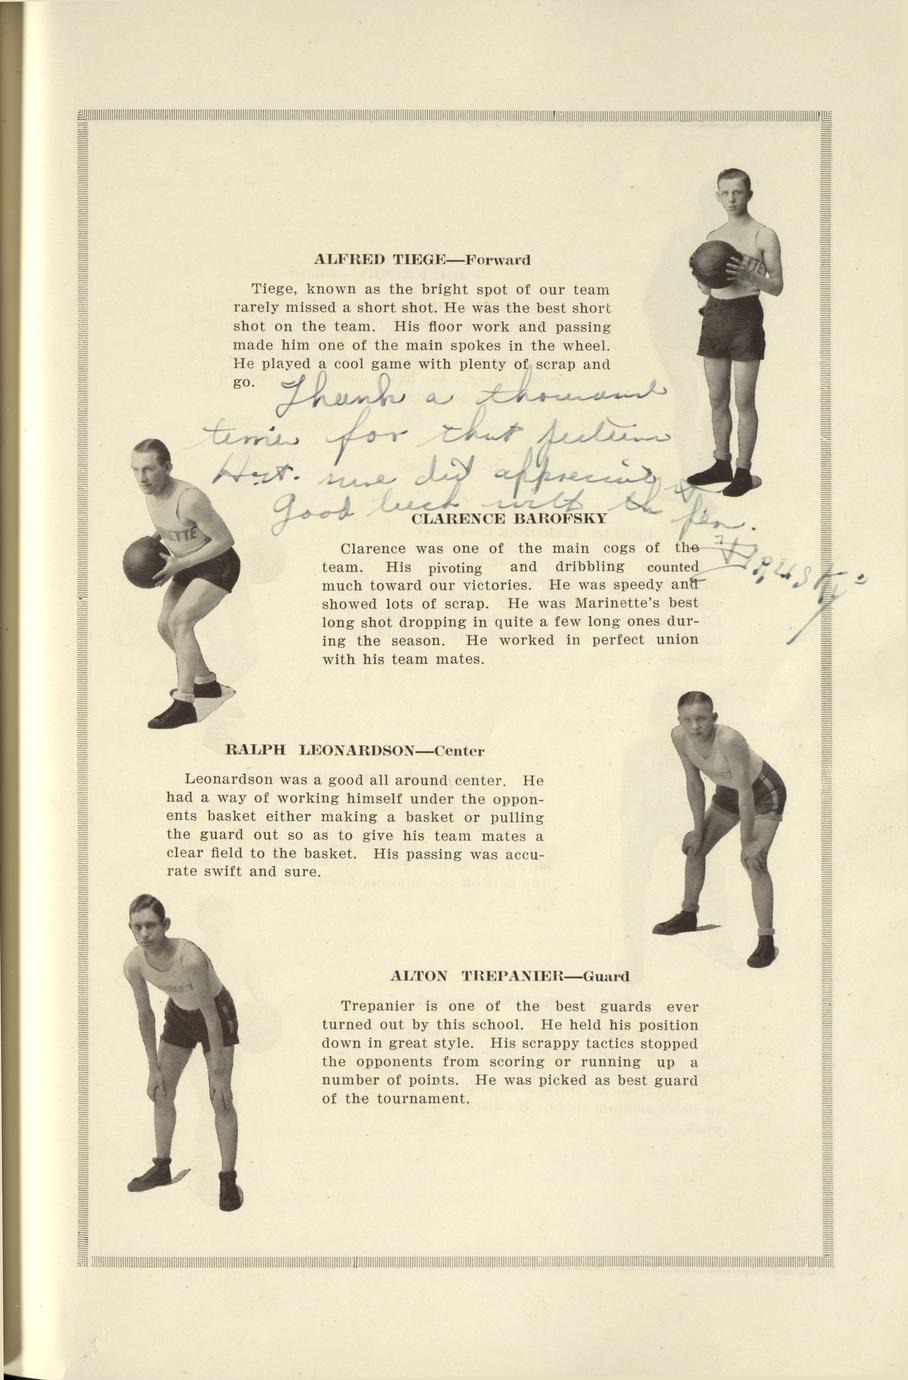 ALFRED TIEGE—Forward
Tiege, known as the bright spot of our team
rarely missed a short shot. He was the best short
shot on the team. His floor work and passing
made him one of the main spokes in the wheel.
He played a cool game with plenty of scrap and
go.
Thank a thousand
times for that picture
did appreciate it
Good luck with th pen.
CLARENCE BAROFSKY
Clarence was one of the main cogs of the
team. His pivoting and dribbling counted
much toward our victories. He was speedy and
showed lots of scrap. He was Marinette's best
long shot dropping in quite a few long ones dur-
ing the season. He worked in perfect union
with his team mates.
RALPH LEONARDSON—Center
Leonardson was a good all around center. He
had a way of working himself under the oppon-
ents basket either making a basket or pulling
the guard out so as to give his team mates a
clear field to the basket. His passing was accu-
rate swift and sure.
ALTON TREPANIER—Guard
Trepanier is one of the best guards ever
turned out by this school. He held his position
down in great style. His scrappy tactics stopped
the opponents from scoring or running up a
number of points. He was picked as best guard
of the tournament.